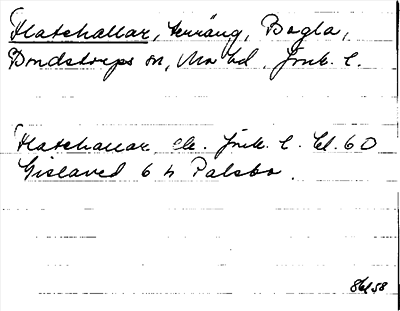 Flatehallar, terräng, Bogla,
Bondstorps sn, Mo hd, Jönk. l.
Flatehallar, ek. Jönk. l. bl. 60
Gislaved 6 h Palsbo.